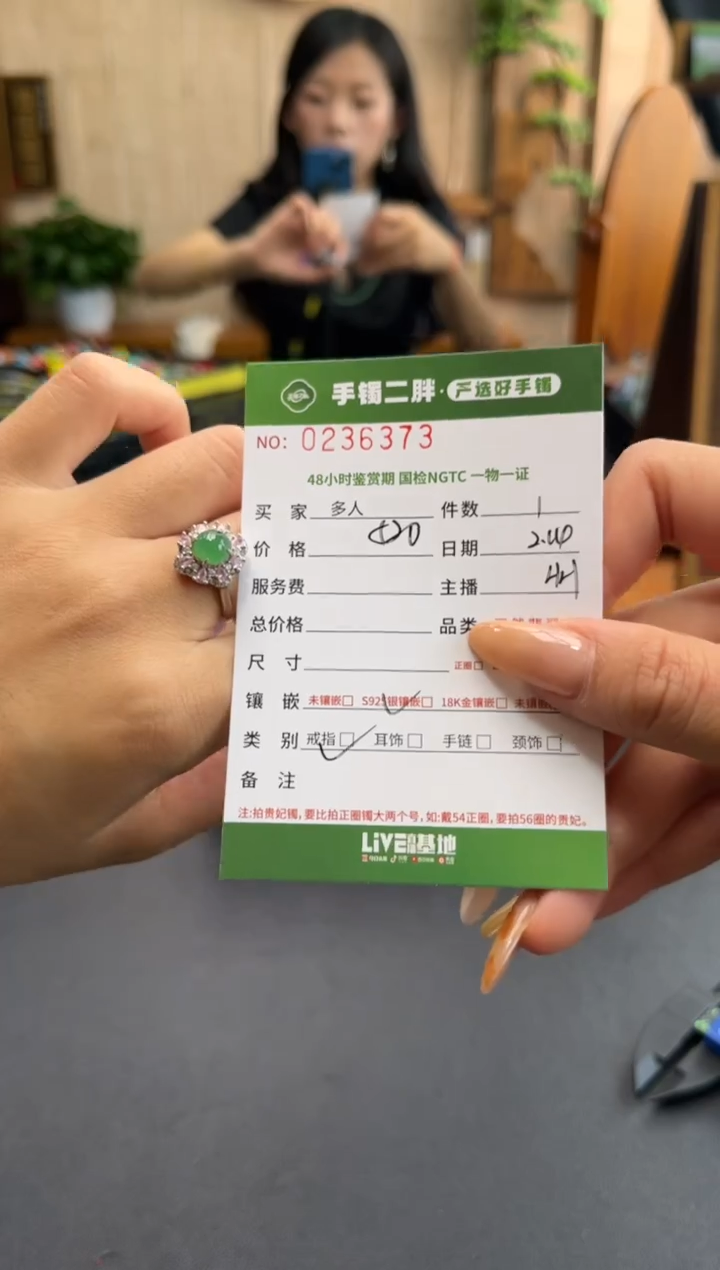 手镯二胖·严选好手镯
NO: 0236373
48小时鉴赏期 国检NGTC 一物一证
买 家 多人 件数 1
价 格 日期
服务费 主播
总价格 品类
尺 寸 正圈□
镶 嵌 未镶嵌□ S925银镶嵌□ 18K金镶嵌□ 未镶
类 别 戒指□ 耳饰□ 手链□ 颈饰□
备 注
注:拍贵妃镯,要比拍正圈镯大两个号,如:戴54正圈,要拍56圈的贵妃。
LiVE 基地